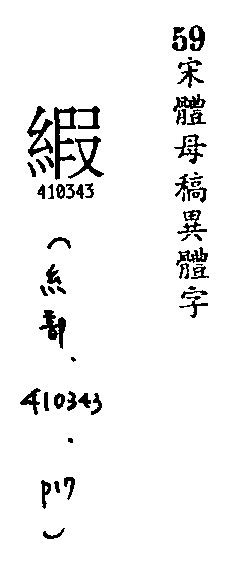 59宋體母稿異體字
縀
410343
(糸部.410343.p17)